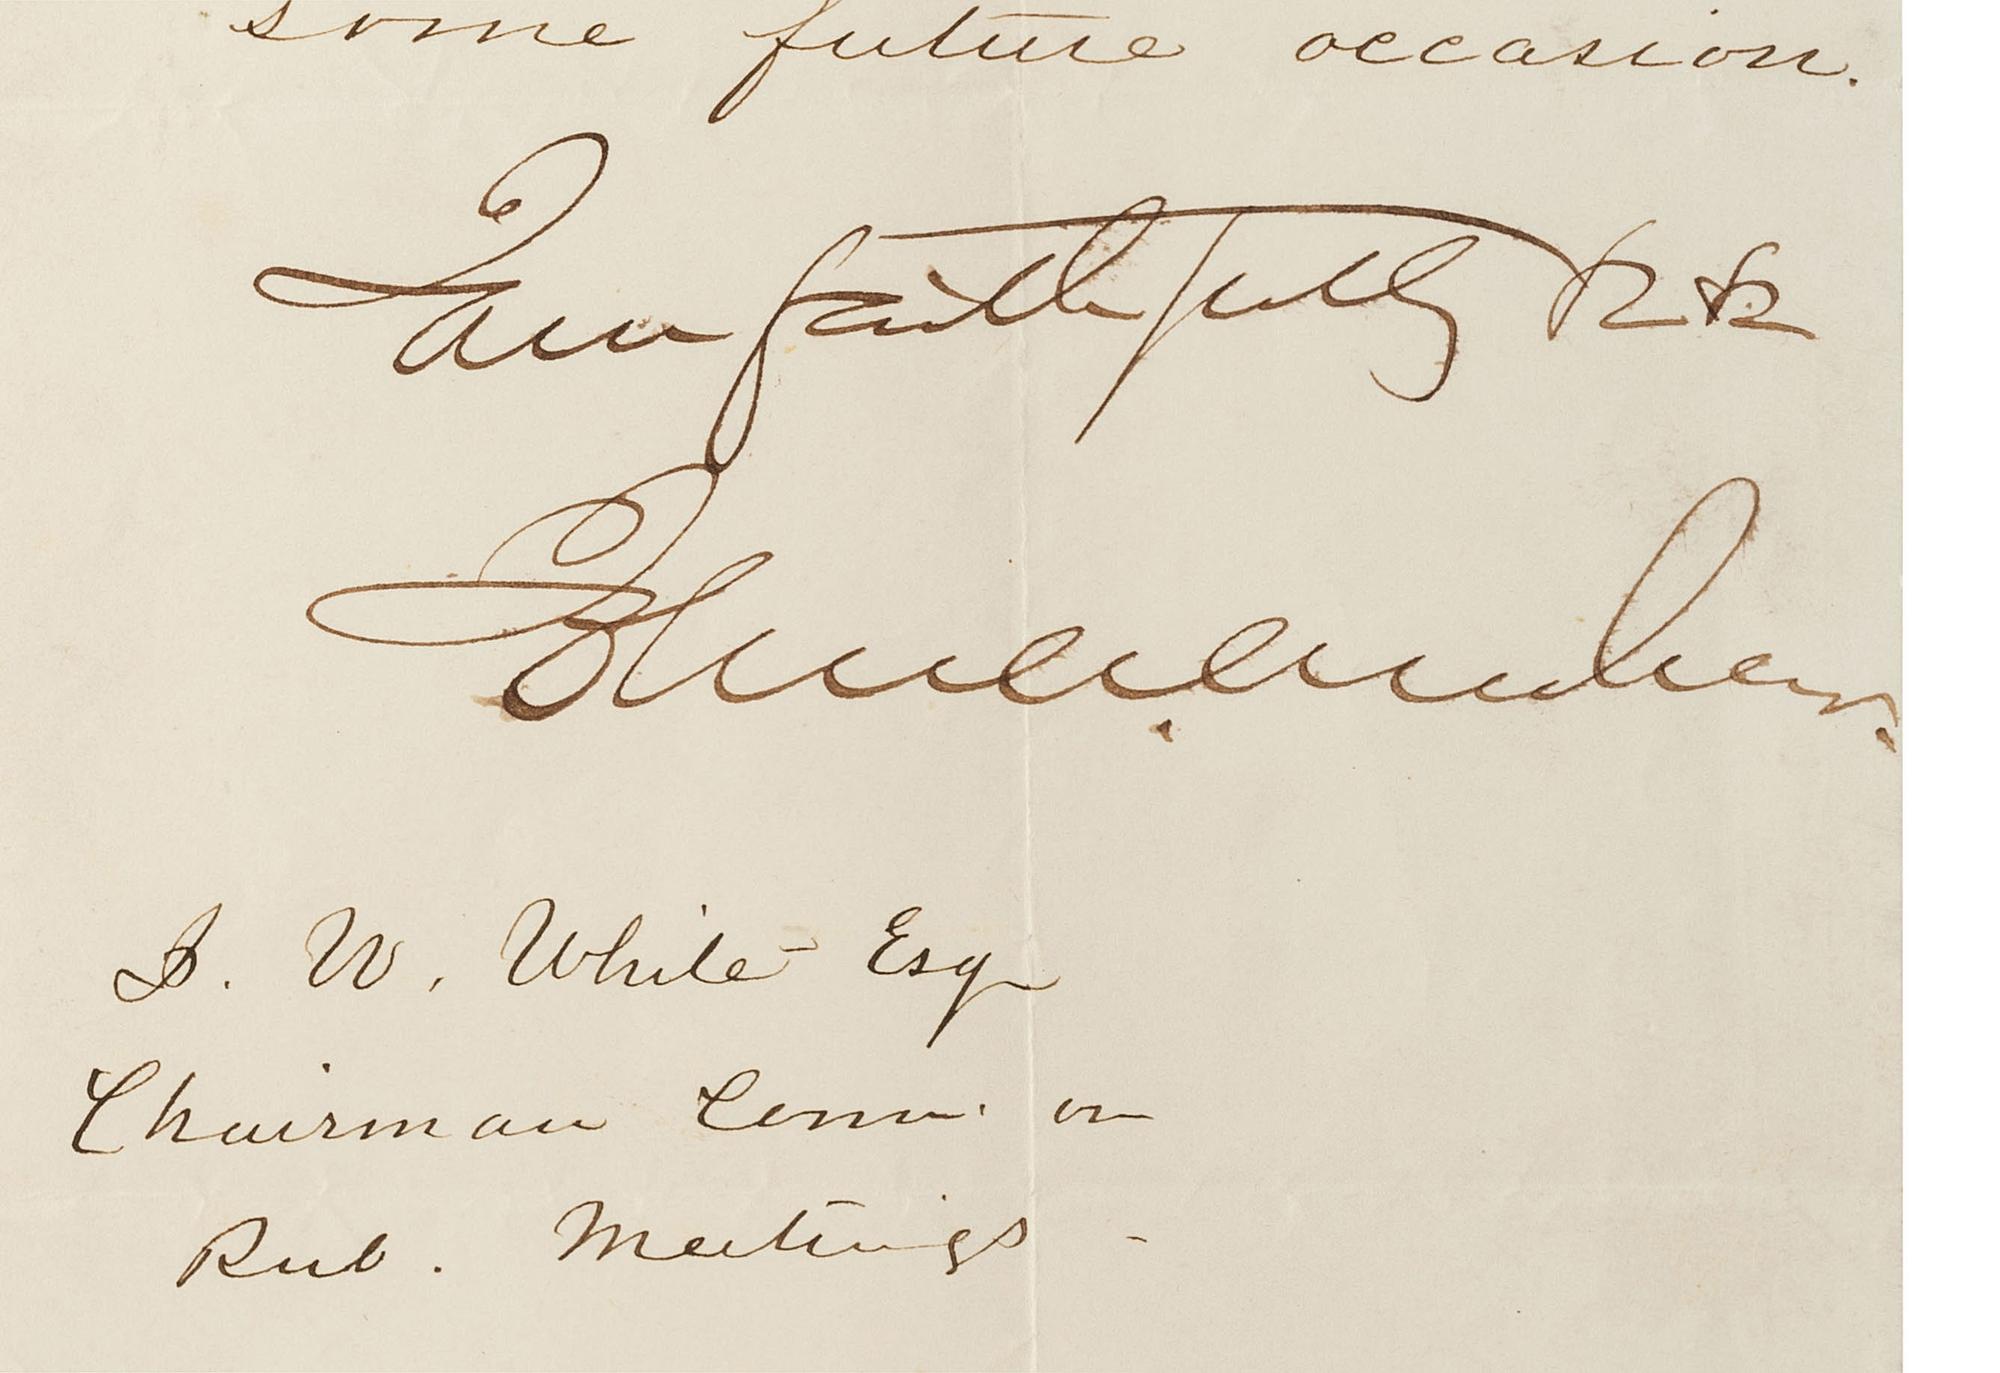 some future occasion.
I am faithfully &c &c
J. W. White Esq
Chairman Comm. on
Pub. Meetings -